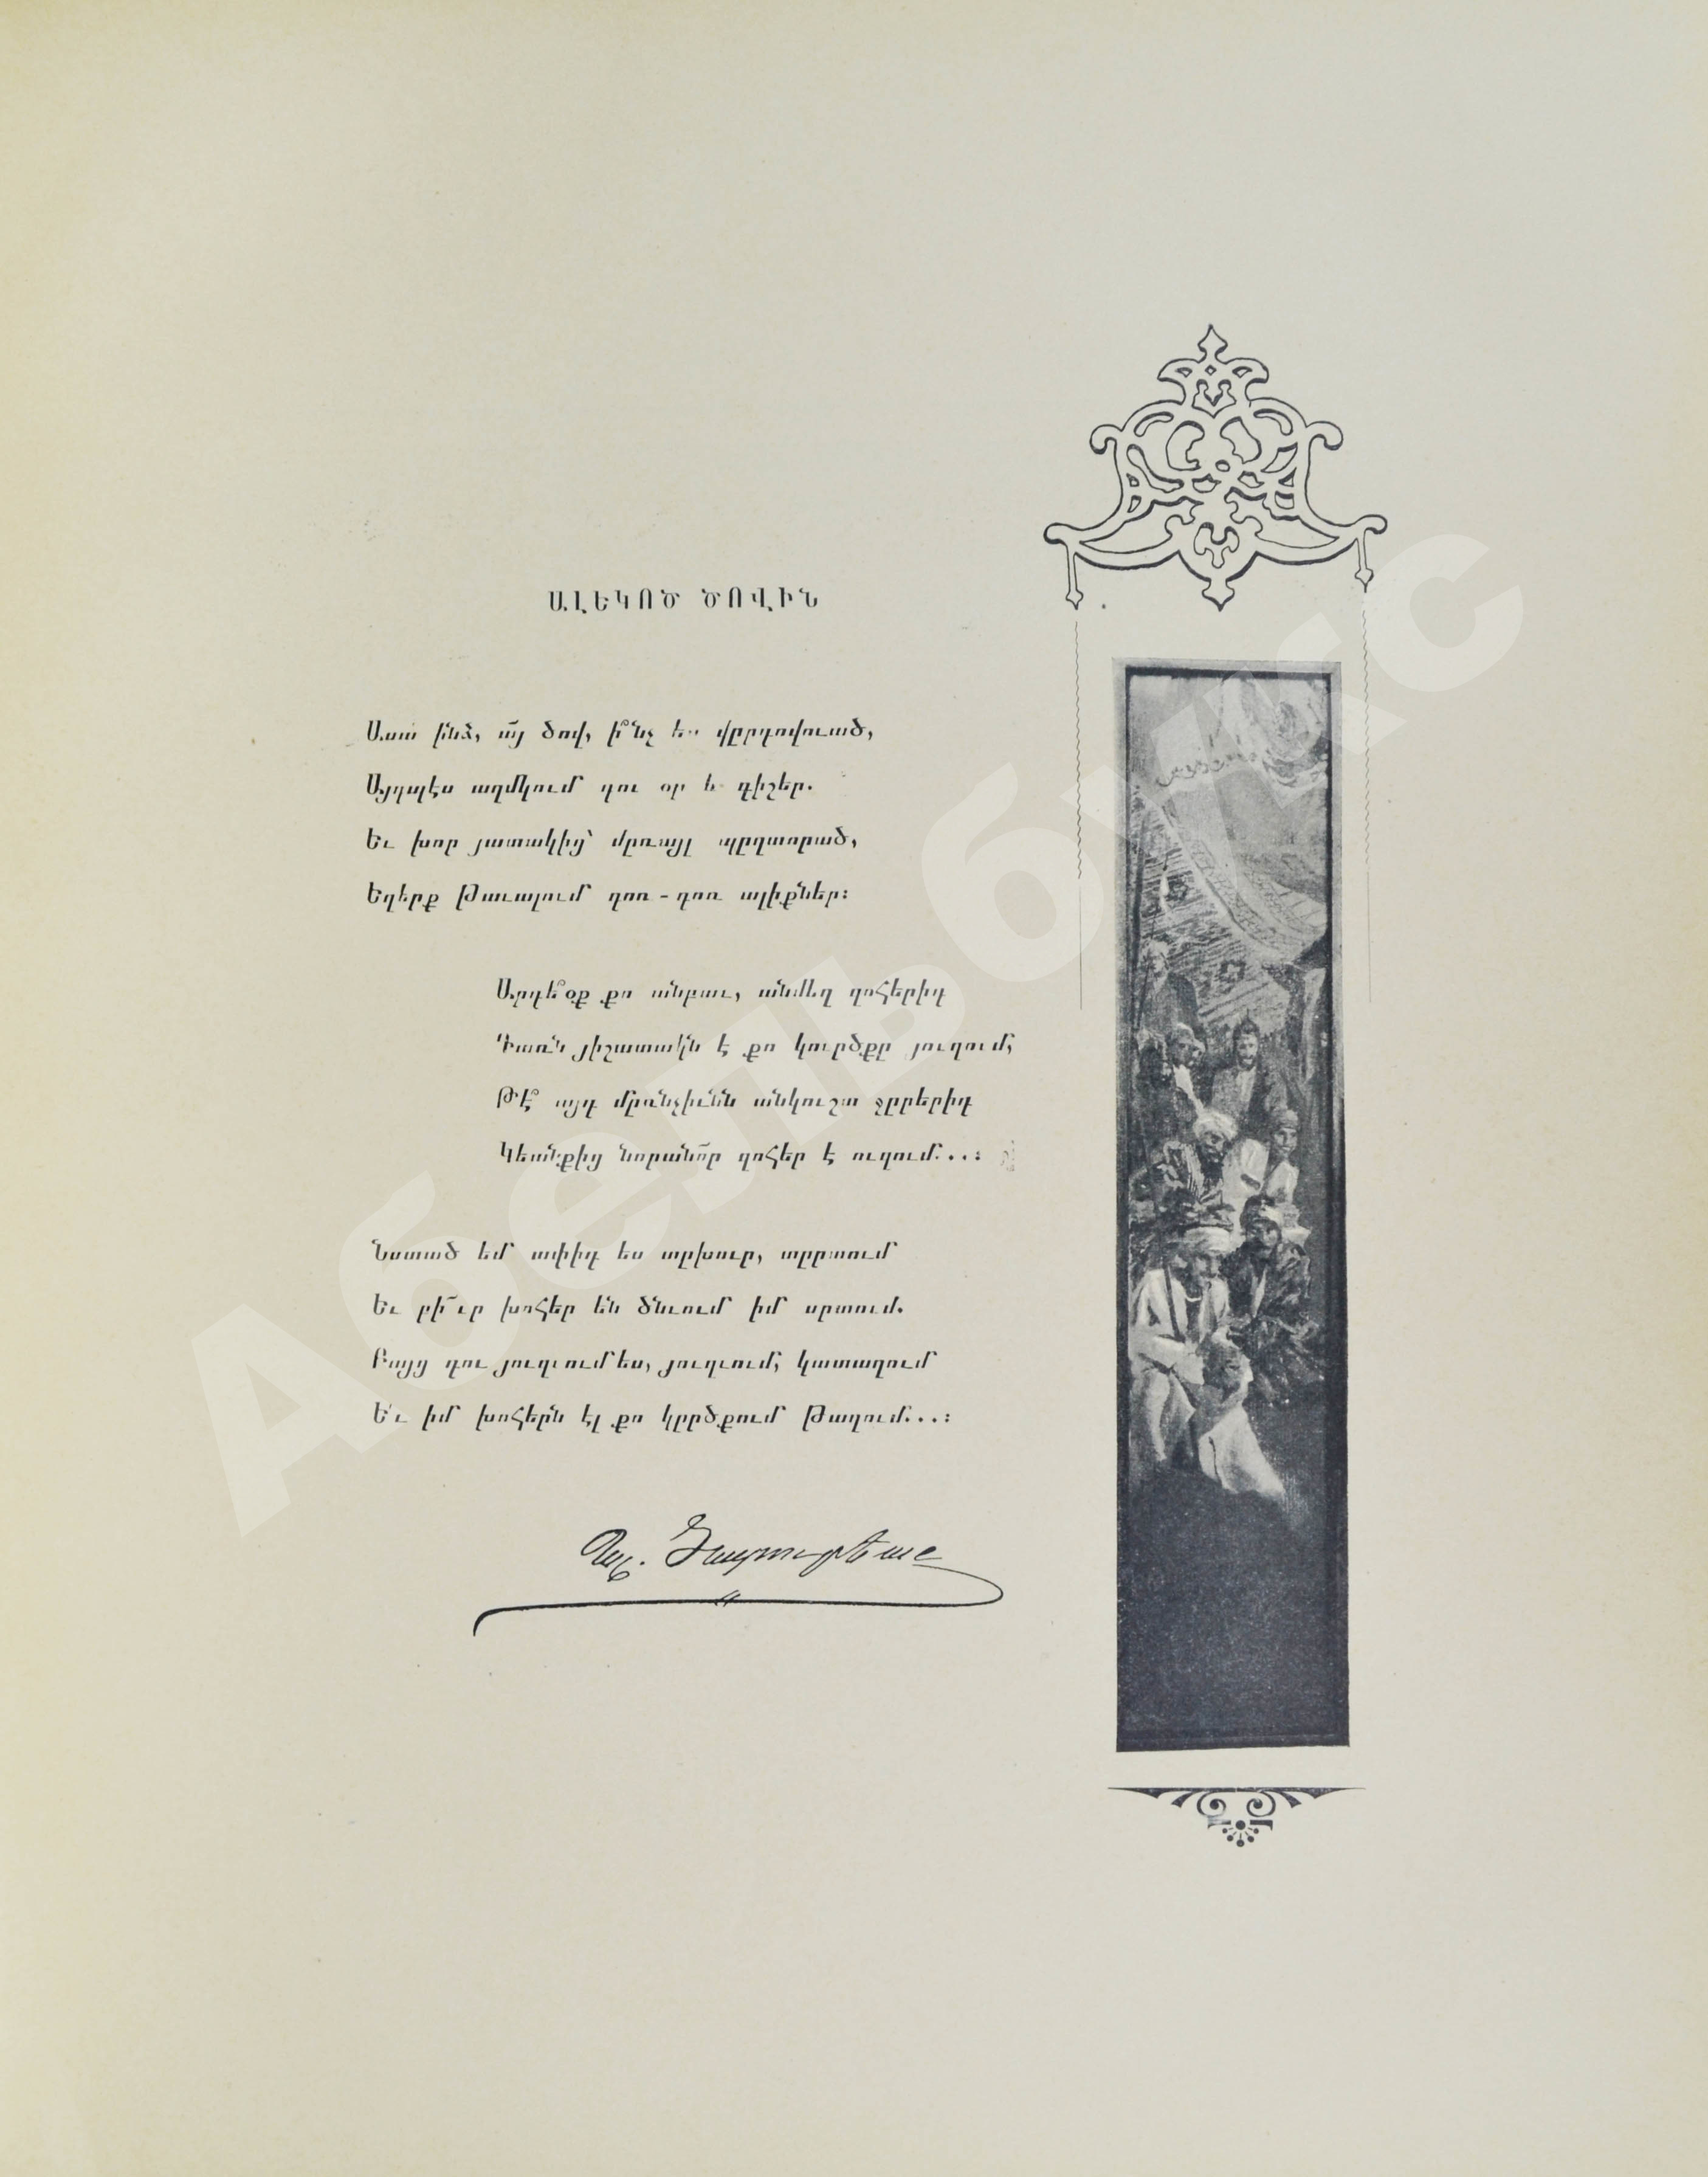 ԱԼԵԿՈԾ ԾՈՎԻՆ
Ասա ինձ, ա՜յ ծով, ի՞նչ ես վըրդովուած,
Այդպէս աղմկում դու օր և գիշեր.
Եւ խոր յատակից՝ մըռայլ պըղտորած,
Եզերք թաւալում դոռ-դոռ ալիքներ։
Արդե՞օք քո անբաւ, անմեղ զոհերիդ
Դառն յիշատակն է քո կուրծքը յուզում,
Թէ՞ այդ մըռնչիւնն անկուշտ ջըրերիդ
Կեանքից նորանո՜ր զոհեր է ուզում...։
Նստած եմ ափիդ ես տըխուր, տըրտում
Եւ բի՜ւր խոհեր են ծնւում իմ սրտում.
Բայց դու յուզւում ես, յուզւում, կատաղում
Ե՛ւ իմ խոհերն էլ քո կըրծքում թաղում...։
Абельбукс